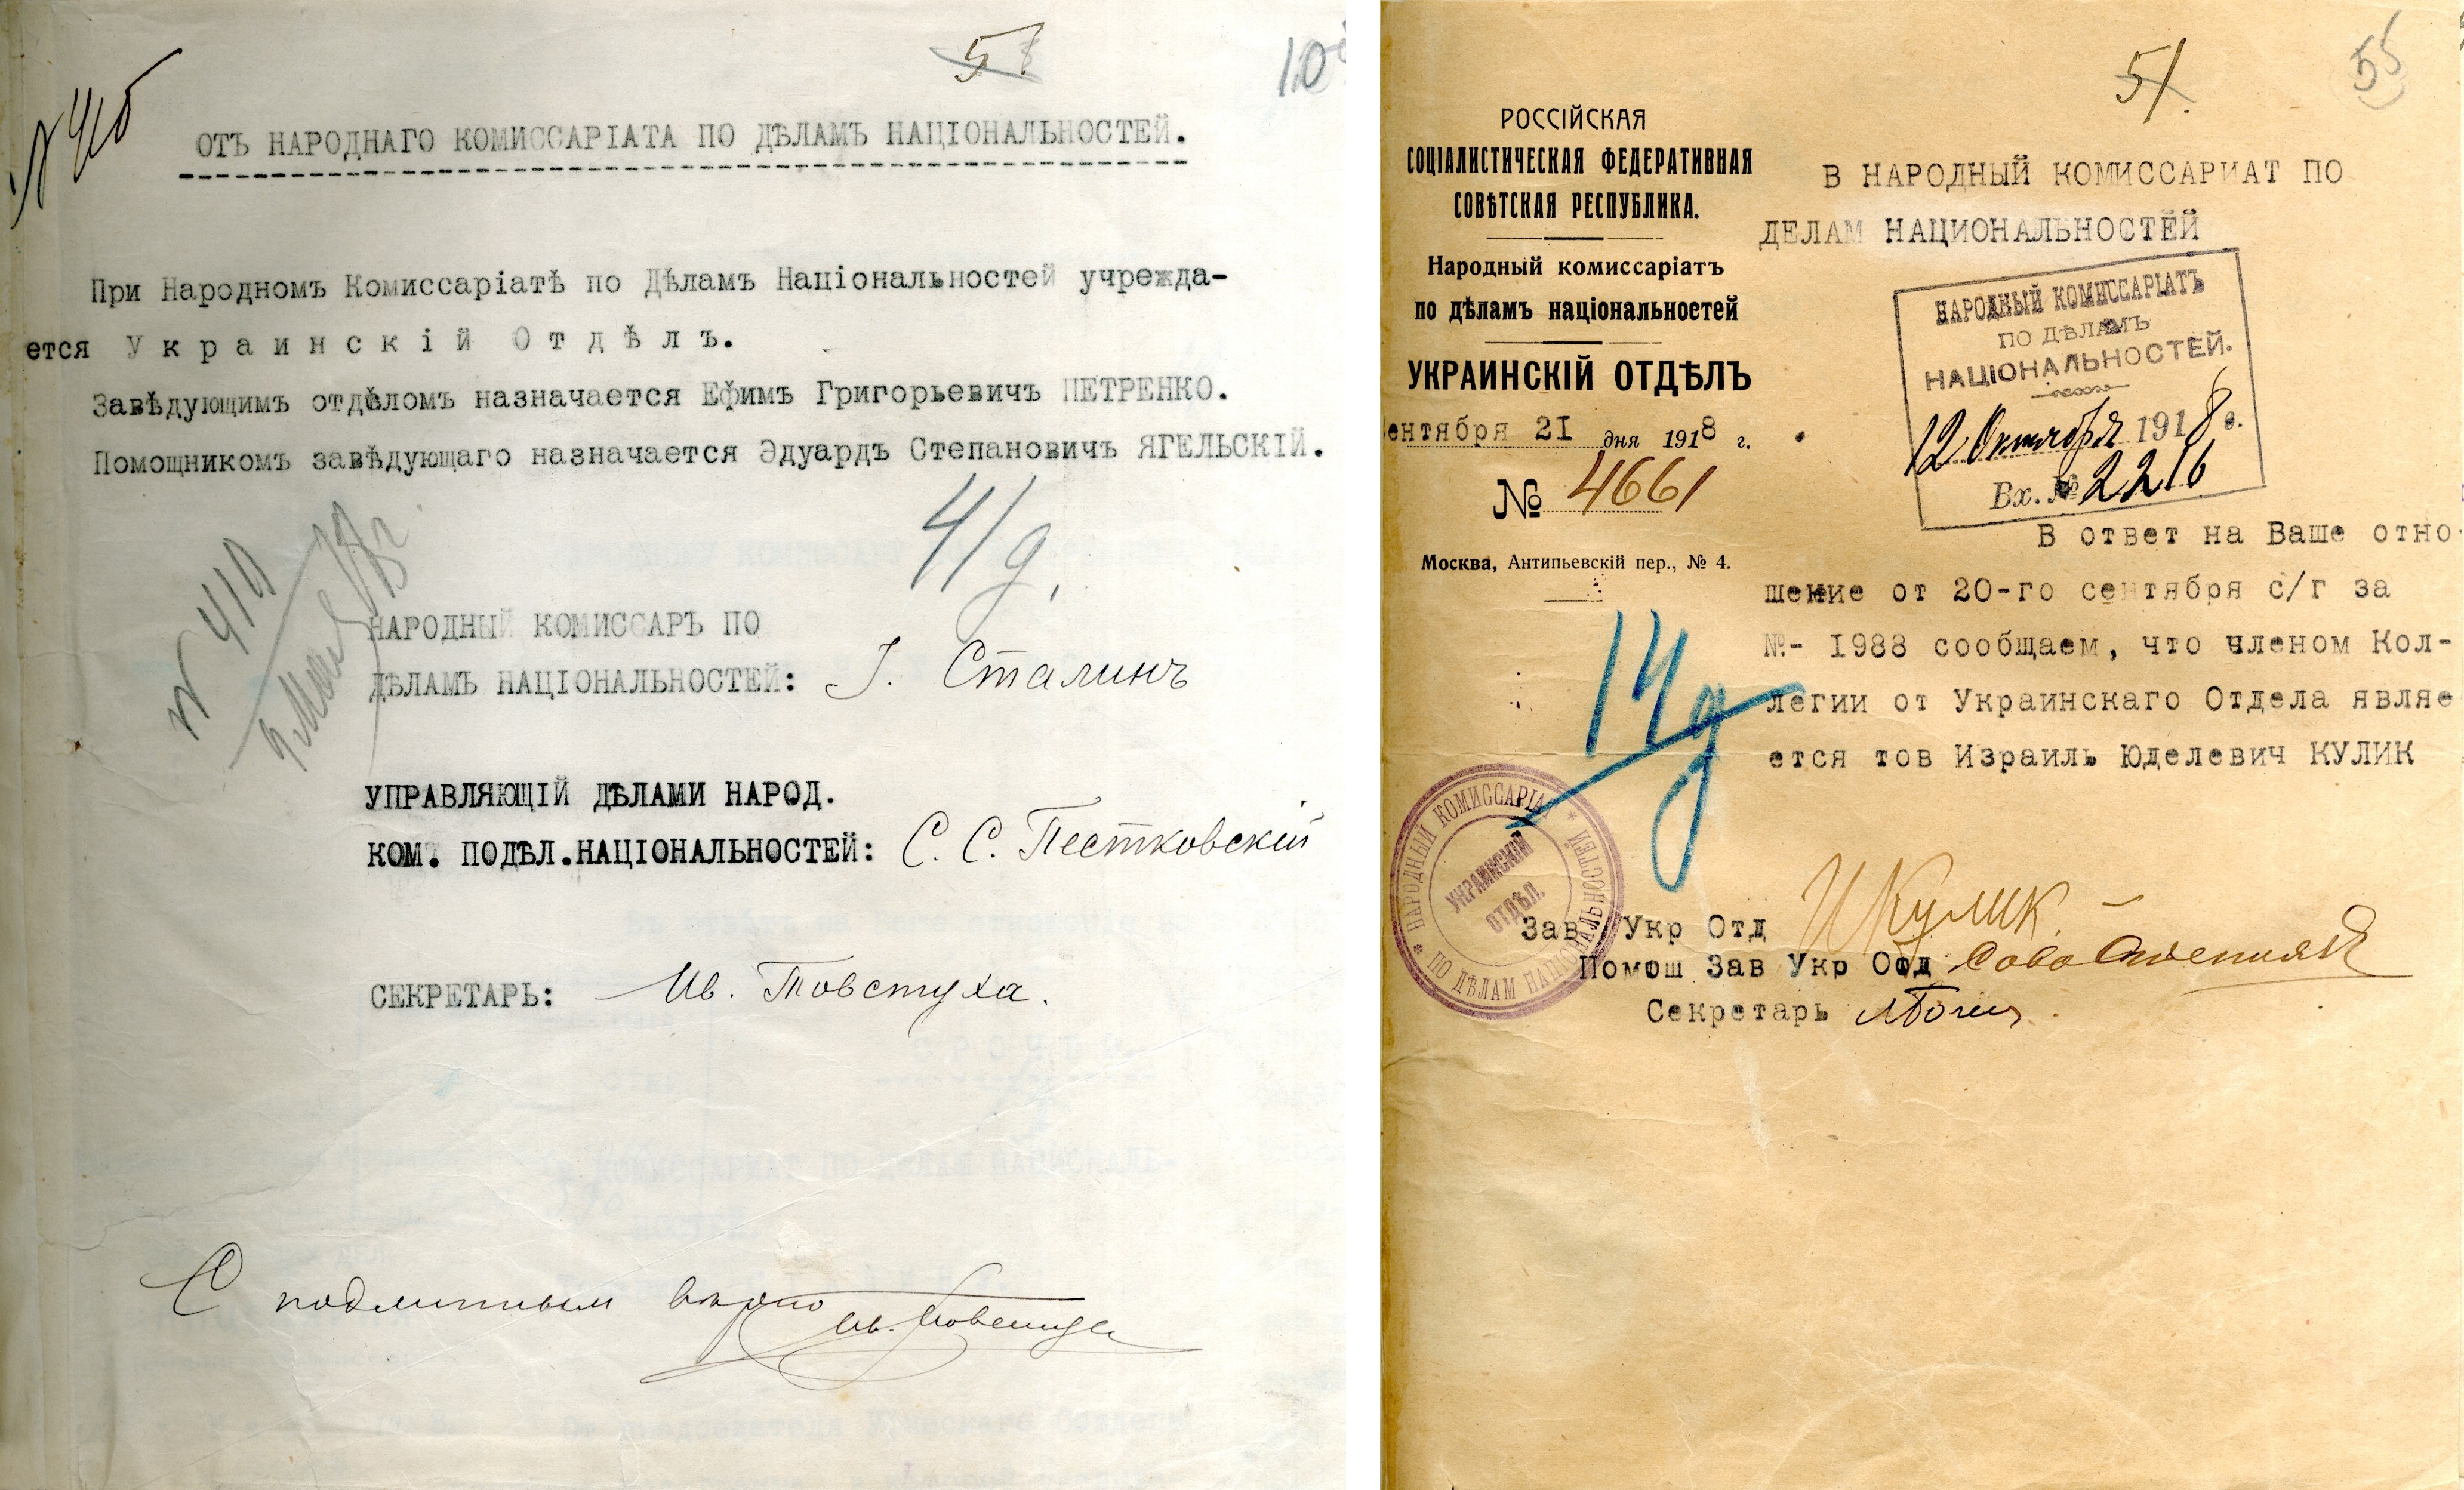 5
10
ОТЪ НАРОДНАГО КОМИССАРІАТА ПО ДѢЛАМЪ НАЦІОНАЛЬНОСТЕЙ.
При Народномъ Комиссаріатѣ по Дѣламъ Національностей учрежда-
ется Украинскій Отдѣлъ.
Завѣдующимъ отдѣломъ назначается Ефимъ Григорьевичъ ПЕТРЕНКО.
Помощникомъ завѣдующаго назначается Эдуардъ Степановичъ ЯГЕЛЬСКІЙ.
41д.
НАРОДНЫЙ КОМИССАРЪ ПО
ДѢЛАМЪ НАЦІОНАЛЬНОСТЕЙ: І. Сталинъ
УПРАВЛЯЮЩІЙ ДѢЛАМИ НАРОД.
КОМ. ПОДѢЛ.НАЦІОНАЛЬНОСТЕЙ: С. С. Пестковскій
СЕКРЕТАРЬ: Ив. Товстуха.
С подлинным верно Ив. Товстуха
51
55
РОССІЙСКАЯ
СОЦІАЛИСТИЧЕСКАЯ ФЕДЕРАТИВНАЯ
СОВѢТСКАЯ РЕСПУБЛИКА.
Народный комиссаріатъ
по дѣламъ національностей
УКРАИНСКІЙ ОТДѢЛЪ
ентября 21 дня 1918 г.
№ 4661
Москва, Антипьевскій пер., № 4.
В НАРОДНЫЙ КОМИССАРИАТ ПО
ДЕЛАМ НАЦИОНАЛЬНОСТЕЙ
НАРОДНЫЙ КОМИССАРІАТЪ
ПО ДѢЛАМЪ
НАЦІОНАЛЬНОСТЕЙ.
12 Октября 1918 г.
Вх. № 2216
В ответ на Ваше отно-
шение от 20-го сентября с/г за
№- 1988 сообщаем, что членом Кол-
легии от Украинскаго Отдела являе
ется тов Израиль Юделевич КУЛИК
14д
НАРОДНЫЙ КОМИССАРІА
ПО ДѢЛАМ НАЦІОНАЛЬНОСТЕЙ
УКРАИНСКІЙ
ОТДѢЛ.
Зав Укр Отд И Кулик
Помош Зав Укр Отд
Секретарь